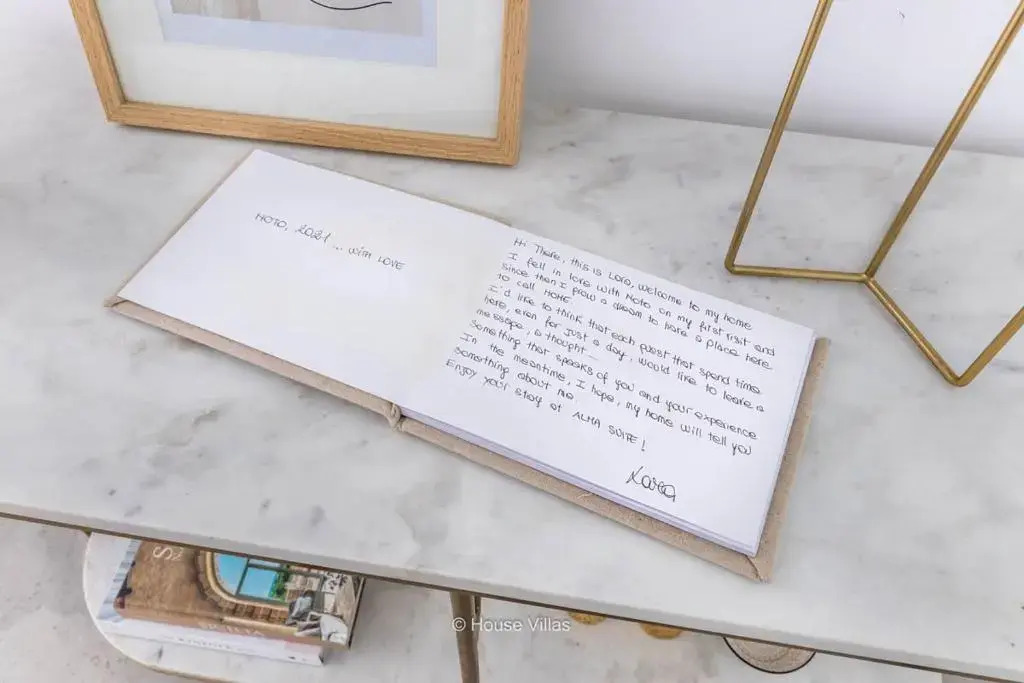 NOTO, 2021 ... WITH LOVE
Hi There, this is Lara, welcome to my home
I fell in love with Noto on my first visit and
since then I grow a dream to have a place here
to call HOME.
I'd like to think that each guest that spend time
here, even for just a day, would like to leave a
message, a thought —
Something that speaks of you and your experience
In the meantime, I hope, my home will tell you
something about me.
Enjoy your stay at ALMA SUITE!
Lara
SICILIA
© House Villas